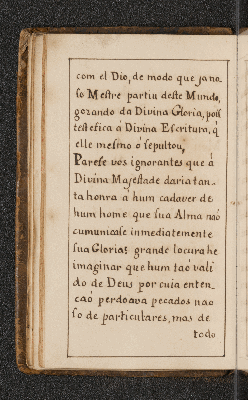 com el Dio, de modo que ja no-
so Mestre partiu deste Mundo,
gozando da Divina Gloria, pois
testefica á Divina Escritura, q̃
elle mesmo ò sepultou,
Parese vos ignorantes que á
Divina Magestade daria tan-
ta honra á hum cadaver de
hum home que sua Alma naõ
cumunicase inmediatemente
sua Gloria? grande locura he
imaginar que hum taõ vali
do de Deus por cuia enten-
caõ perdoava pecados nao
so de particulares, mas de
todo